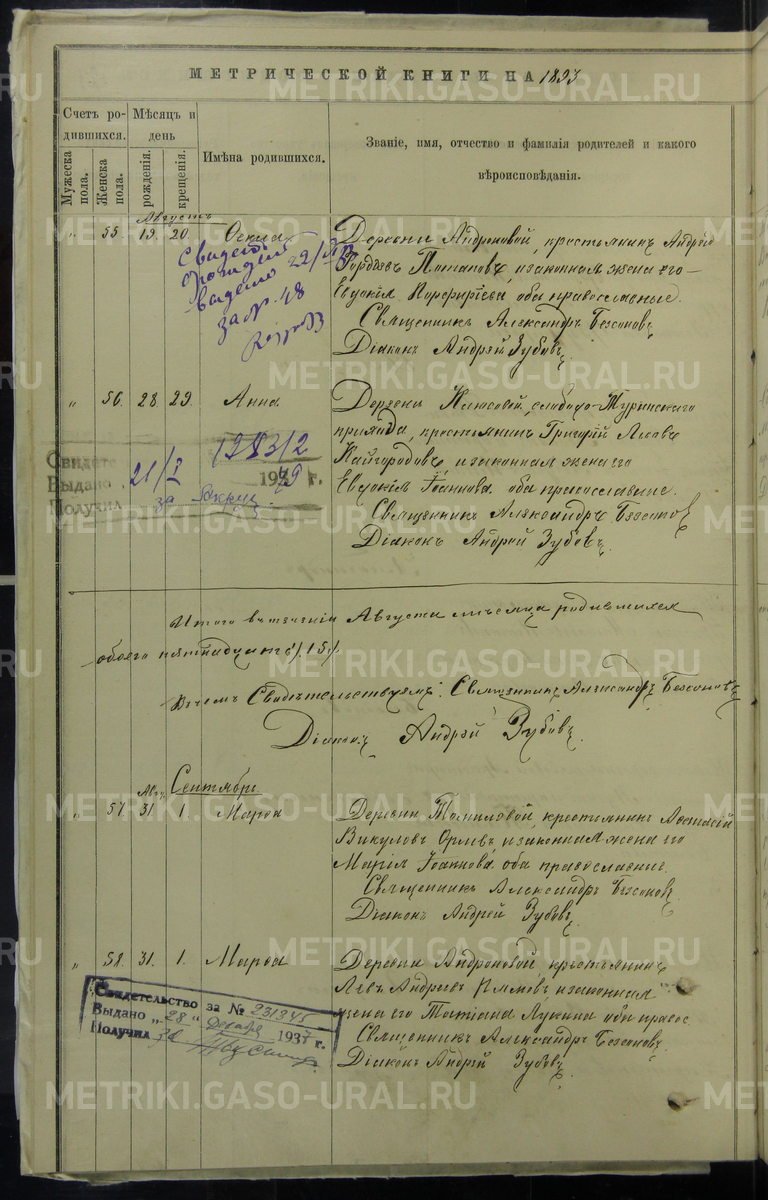 МЕТРИЧЕСКОЙ КНИГИ НА 1893
Счетъ родившихся.
Мужеска пола.
Женска пола.
Мѣсяцъ и день
рожденія.
крещенія.
Имѣна родившихся.
Званіе, имя, отчество и фамилія родителей и какого вѣроисповѣданія.
Августъ
" 55. 19. 20. Ѳекла
Деревни Андроновой, крестьянинъ Андрей
Гордѣевъ Потаповъ, и законная жена его
Евдокія Порфиріева оба православные.
Священникъ Александръ Безсоновъ
Діаконъ Андрей Зубовъ
за № 48
" 56. 28. 29. Анна
Деревни слободо-Туринскаго
прихода, крестьянинъ Григорій
Кайгородовъ, и законная жена его
Евдокія Іоаннова оба православные.
Священникъ Александръ Безсоновъ
Діаконъ Андрей Зубовъ
Свидет
Выдано 21/I 1949 г.
Получил
Итого въ теченіи Августа мѣсяца родившихся
обоего пятнадцать /15/.
Въ чемъ Свидѣтельствуемъ: Священникъ Александръ Безсоновъ
Діаконъ Андрей Зубовъ
Сентябрь.
Авг.
" 57. 31. 1. Марѳа
Деревни Томиловой, крестьянинъ
Викуловъ Орловъ, и законная жена его
Марія Іоаннова оба православные.
Священникъ Александръ Безсоновъ
Діаконъ Андрей Зубовъ
" 58. 31. 1. Марѳа
Деревни Андроновой, крестьянинъ
Левъ Андреевъ и законная
жена его Татіана Лукина оба правос
Священникъ Александръ Безсоновъ
Діаконъ Андрей Зубовъ
Свидетельство за № 231345
Выдано „28" декабря 1937 г.
Получил
METRIKI.GASO-URAL.RU